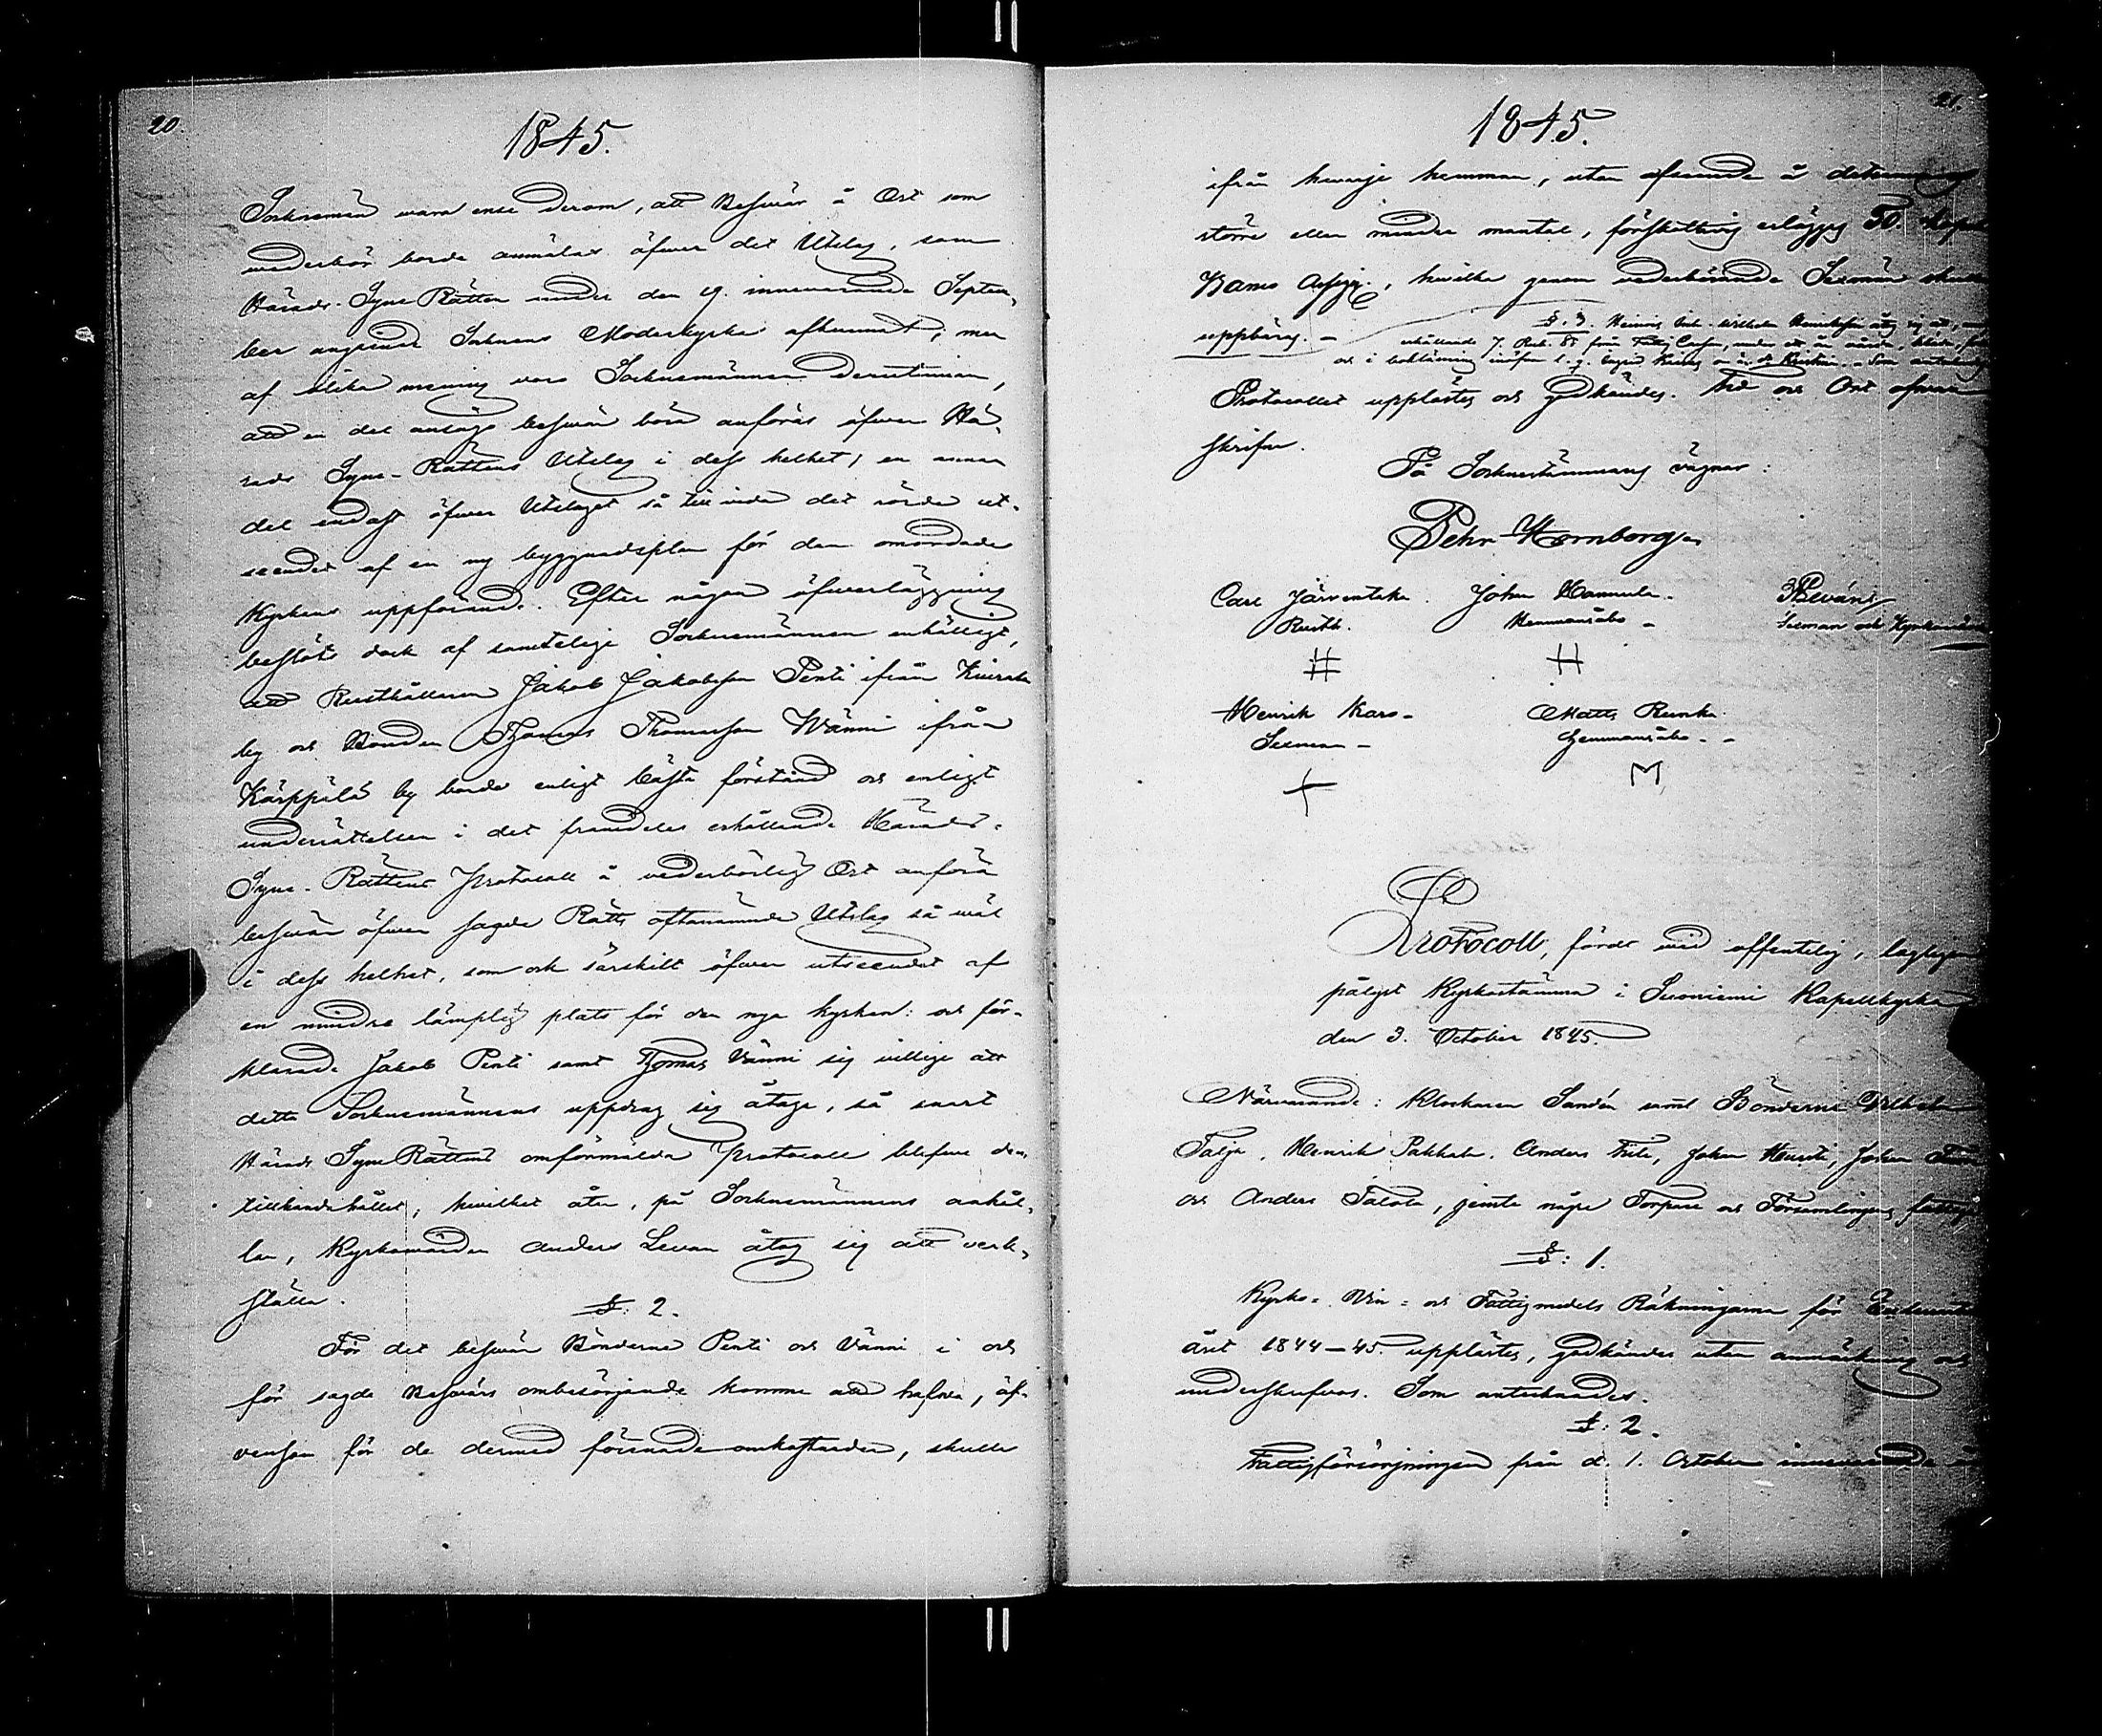 20.
1845.
Socknemän vara ense derom, att Besvär å Ort som
wederbör borde anmälas öfwer det Utslag, som
Härads-Syne Rätten under den 19. innewarande Septem,
ber angående Socknens Moderkyrka afkunnat; men
af olika mening voro Socknemännen derutinnan,
att en del ansågo besvär böra anföras öfwer Hä,
rads Syne-Rättens Utslag i dess helhet, en annan
del endast öfwer Utslaget så till vida det rörde ut-
seendet af en ny byggnadsplan för den omordade
Kyrkans uppförande. Efter någon öfwerläggning
beslöts dock af samtelige Socknemännen enhälligt,
att Rusthållaren Jakob Jakobsson Penti ifrån Kiurala
by och Bonden Thomas Thomasson Wänni ifrån
Kärppälä by borde enligt bästa förstånd och enligt
underrättelsen i det framdeles erhållande Härads-
Syne-Rättens Protocoll å vederbörlig Ort anföra
besvär öfwer sagde Rätts oftanämnde Utslag så wäl
i dess helhet, som ock särskilt öfwer utseendet af
en mindre lämplig plats för den nya kyrkan: och för-
klarade Jakob Penti samt Thomas Vänni sig villige att
detta Socknemännens uppdrag sig åtaga, så snart
Härads Syne Rättens omförmälda Protocoll blefwe dem
tillhandahållet, hwilket åter, på Socknemännens anhål,
lan, Kyrkowärden Anders Levan åtog sig att verk-
ställa.
§: 2.
För det besvär Bönderne Penti och Vänni i och
för sagde Besvärs ombesörjande komme att hafwa, äf-
vensom för de dermed förenade omkostnader, skulle
21.
1845.
ifrån hwarje hemman, utan afseende å
större eller mindre mantal, förskottvis erläggas 50. Kopek
Banco Assign., hwilka genom vederbörande Sexmän
uppbäras. –
§. 3
Protocollet upplästes och godkändes. Tid och Ort ofwan
skrifne.
På Sockenstämmans vägnar:
Pehr Hornborg
Carl Järventaka. Johan Hannula.
Rusth. Hemmansåbo – Sexman och Kyrkowärd
Henrik Karo – Matts Runka
Sexman – Hemmansåbo. –
M
Protocoll, fördt wid offentelig, lagligen
pålyst Kyrkostämma i Suoniemi Kapellkyrka
den 3. October 1845.
Närvarande: Klockaren Sandén samt Bönderne Wilhelm
Talja, Henrik Pakkala, Anders Kili, Johan Heurti, Johan
och Anders Talola, jemte några Torpare och Församlingens fattige
§: 1.
Kyrko- Vin- och Fattigmedels Räkningarna för
året 1844–45. upplästes, godkändes utan anmärkning och
underskrefvos. Som antecknades.
§: 2.
Fattigförsörjningen från d. 1. October innevarande år